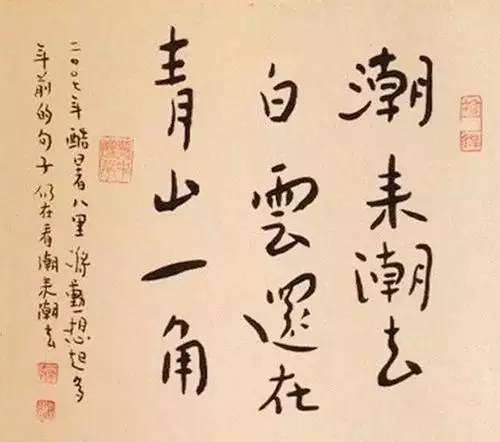 潮来潮去
白雲還在
青山一角
二〇〇七年酷暑八里蔣勳想起多
年前的句子仍在看潮来潮去